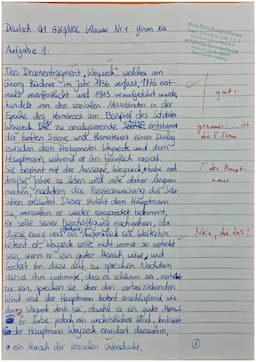 Deutsch Q1 GK/NOL Klausur Nr.1
Aufgabe 1:
Das Dramenfragment „Woyzeck", welches von
Georg Büchner im Jahr 1836 verfasst, 1878 erst-
mals veröffentlicht und 1913 uraufgeführt wurde,
handelt von den sozialen Missständen in der
Epoche des Vormärzes am Beispiel des Soldaten
Woyzeck. Die zu analysierende Szene entstammt
der fünften Szene und thematisiert einen Dialog
zwischen dem Protagonisten Woyzeck und dem
Hauptmann, während er ihn beruflich rasiert.
Sie beginnt mit der Aussage, Woyzeck habe noch
dreißig Jahre zu leben und solle daher langsam
machen, nachdem die Regieanweisung die Situ-
ation erläutert. Dieser stimmt dem Hauptmann
zu, woraufhin er wieder eingeredet bekommt,
er solle seiner Beschäftigung nachgehen, da
diese ewig und ein Augenblick sei. Weiterhin
betont er, Woyzeck solle nicht immer so verhetzt
sein, wenn er ein guter Mensch wäre, und
fordert ihn dazu auf zu sprechen. Nachdem
dieser ihm zustimmt, dass es schlimm sei,
zu sein, sprechen sie über den vorbeiziehenden
Wind und der Hauptmann betont anschließend, wie
dumm Woyzeck doch sei, obwohl er ein guter Mensch
Er habe jedoch ein uneheliches Kind, kritisiert
der Hauptmann. Woyzeck erwidert daraufhin,
ein Mensch der sozialen Unterschicht,
gut!
genannt ist
die 5. Szene
des Haupt-
manns
Nein, die Zeit!
1